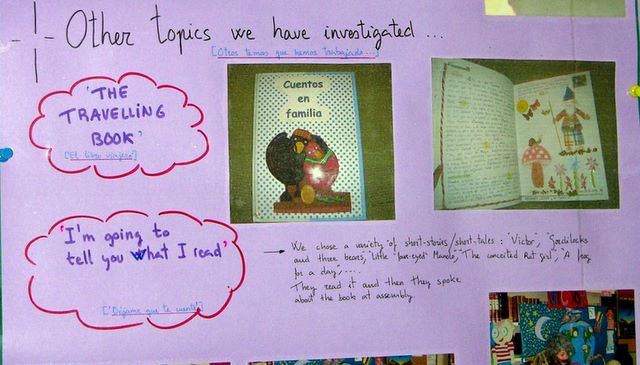 Other topics we have investigated ...
[Otros temas que hemos trabajado...]
'THE
TRAVELLING
BOOK'
['El libro viajero']
Cuentos
en
familia
'I'm going to
tell you what I read'
['Déjame que te cuente']
→ We chose a variety of short-stories/short-tales: "Victor", "Goldilocks
and three bears", "Little "four-eyed" Manolo", "The conceited Rat girl", "A frog
for a day",....
They read it and then they spoke
about the book at assembly.